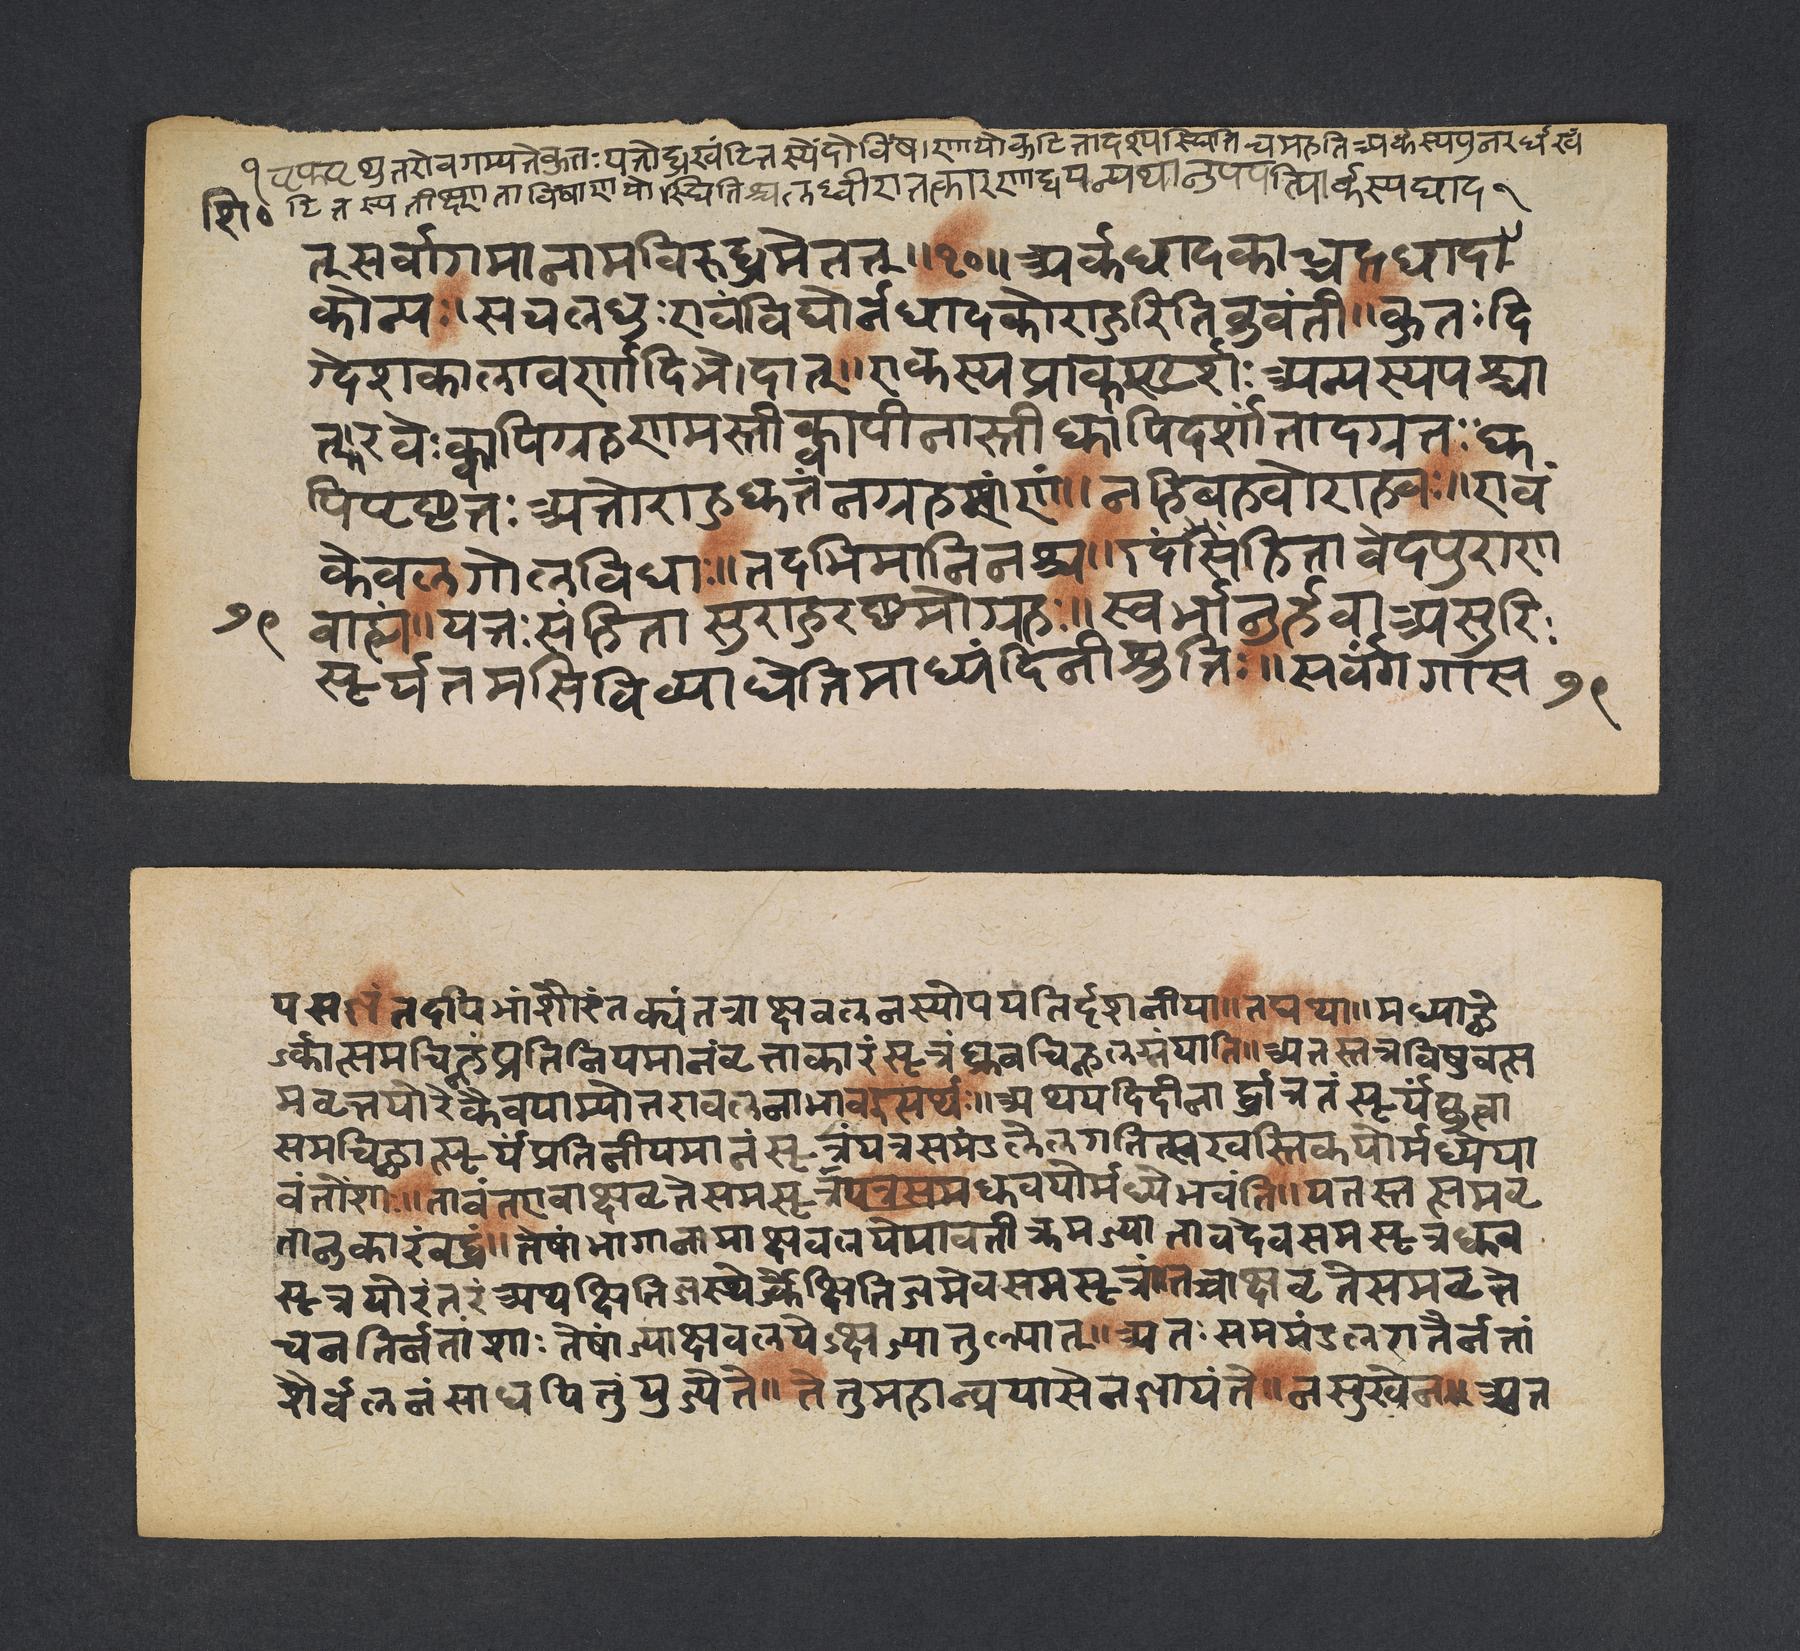 १ पृथक्पृथुतरोवगम्यतेकुतः यतोर्द्धखंडितस्येंदोर्विषाणयोःकुंठितादृश्यस्थितिश्चमहतिअर्कस्यपुनरर्धखं
शि० डितस्यतीक्ष्णताविषाणयोःस्थितिश्चलघ्वीएतत्कारणद्वयान्यथानुपपत्त्यार्कस्यछाद१
त्सर्वागमानामविरुद्धमेतत्॥१०॥अर्कछादकाच्चंद्रछादा
कोन्यः॥सचलघुः एवंविधोर्नछादकोराहुरितिब्रुवंती॥कुतः दि
ग्देशकालावर्णादिभेदात्॥एकस्यप्राक्स्पर्शः अन्यस्यपश्चा
त्॥रवेःक्वापिग्रहणमस्तीक्वापीनास्तीक्वापिदर्शांतादग्रतः क्व
पिपृष्ठतः अतोराहुकृतंनग्रहणं॥नहिबहवोराहवः॥एवं
केवलगोलविद्याः॥तदभिमानिनश्च॥इदंसंहितावेदपुराण
७९ बाह्यं॥यतः संहितासुराहुरष्टमोग्रहः॥स्वर्भानुर्हवाअसुरिः
सूर्यतमसिविव्याधेतिमाध्यंदिनीश्रुतिः॥सर्वंगंगास ७९
यसज्ञंतदपिभांशैरंतक्यंतत्राक्षवलनस्योपपतिर्दर्शनीया॥तद्यथा॥मध्याह्ने
ऽर्कात्समचिह्नंप्रतिनियमानंवृत्ताकारंसूत्रंध्रुवचिह्नलग्नंयाति॥अतस्तत्रविषुवत्स
मवृत्तयोरेकैवयाम्योत्तरावलनाभावइत्यर्थः॥अथयदिदीनार्द्धान्नतंसूर्यंधृत्वा
समचिह्नात्सूर्यंप्रतिनीयमानंसूत्रंयत्रसमंडलेलगतितत्खस्वस्तिकयोर्मध्येया
वंतोंशाः॥तावंतएवाक्षवृतेसमसूत्रध्रुवयोर्मध्येभवंति॥यतस्तत्समवृ
तानुकारंबद्धं॥तेषांभागानामाक्षवलयेयावतीक्रमज्यातावदेवसमसूत्रध्रुव
सूत्रयोरंतरंअथक्षितिजस्थेर्केक्षितिजमेवसमसूत्रं॥तच्चाक्षवृतेसमवृत्ते
चनतिर्नतांशाः तेषांज्याक्षवलयेक्षज्यातुल्यात्॥अतः सममंडलगतैर्नतां
शैर्वलनंसाधयितुंयुज्येते॥तेतुमहात्प्रयासेनज्ञायंते॥नसुखेन॥अत